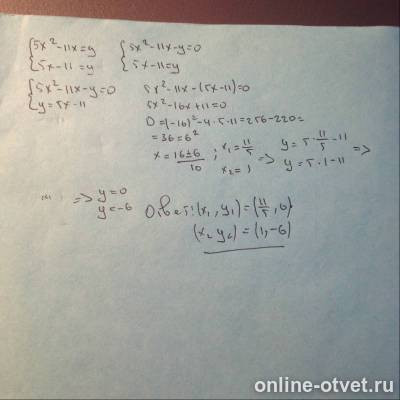 {5x²-11x=y {5x²-11x-y=0
{5x-11=y {5x-11=y
{5x²-11x-y=0 5x²-11x-(5x-11)=0
{y=5x-11 5x²-16x+11=0
D=(-16)²-4·5·11=256-220=
=36=6²
x=16±6/10 ; x₁=11/5 => y=5·11/5-11 =>
x₂=1 y=5·1-11
=> y=0
y=-6
Ответ: (x₁, y₁)=(11/5, 0)
(x₂ y₂)=(1,-6)
online-otvet.ru